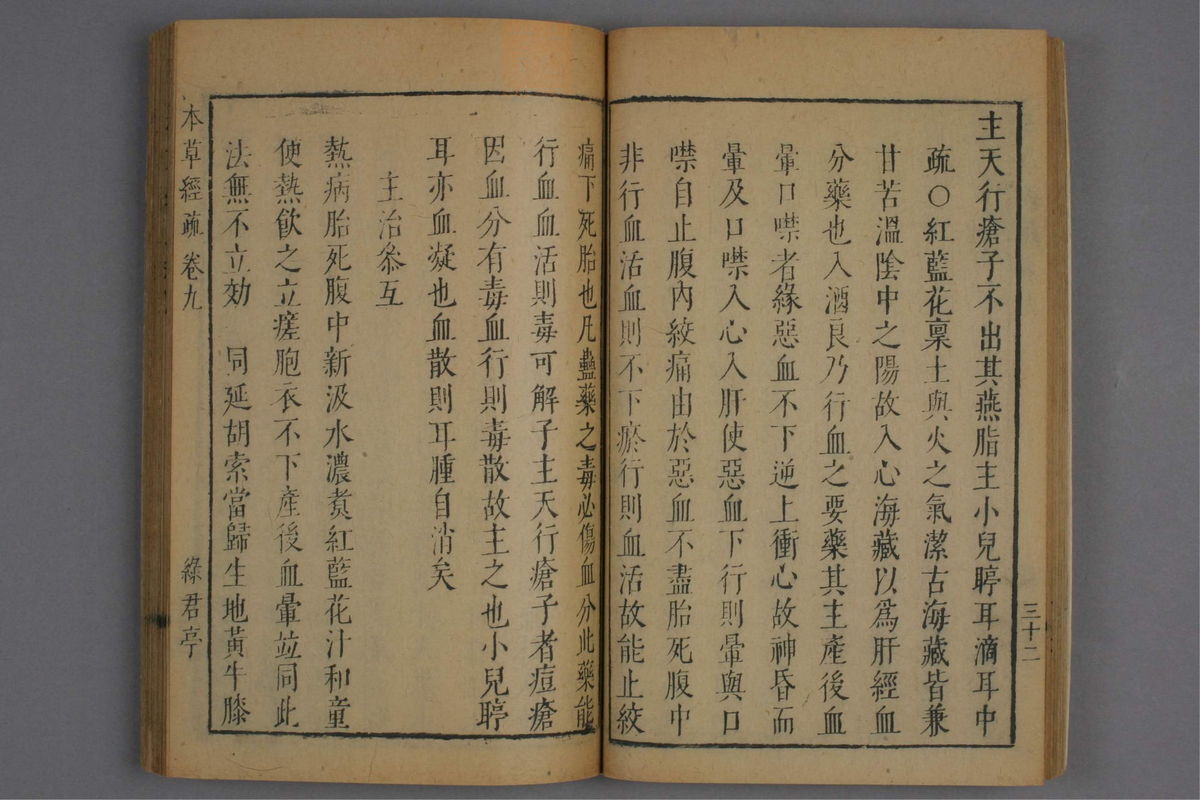 主天行瘡子不出其燕脂主小兒聤耳滴耳中
疏○紅藍花稟土與火之氣潔古海藏皆兼
甘苦溫陰中之陽故入心海藏以爲肝經血
分藥也入酒良乃行血之要藥其主產後血
暈口噤者緣惡血不下逆上衝心故神昏而
暈及口噤入心入肝使惡血下行則暈與口
噤自止腹內絞痛由於惡血不盡胎死腹中
非行血活血則不下瘀行則血活故能止絞
三十二
痛下死胎也凡蠱藥之毒必傷血分此藥能
行血血活則毒可解子主天行瘡子者痘瘡
因血分有毒血行則毒散故主之也小兒聤
耳亦血凝也血散則耳腫自消矣
主治叅互
熱病胎死腹中新汲水濃煮紅藍花汁和童
便熱飮之立瘥胞衣不下產後血暈竝同此
法無不立効 同延胡索當歸生地黃牛膝
本草經疏 卷九 綠君亭